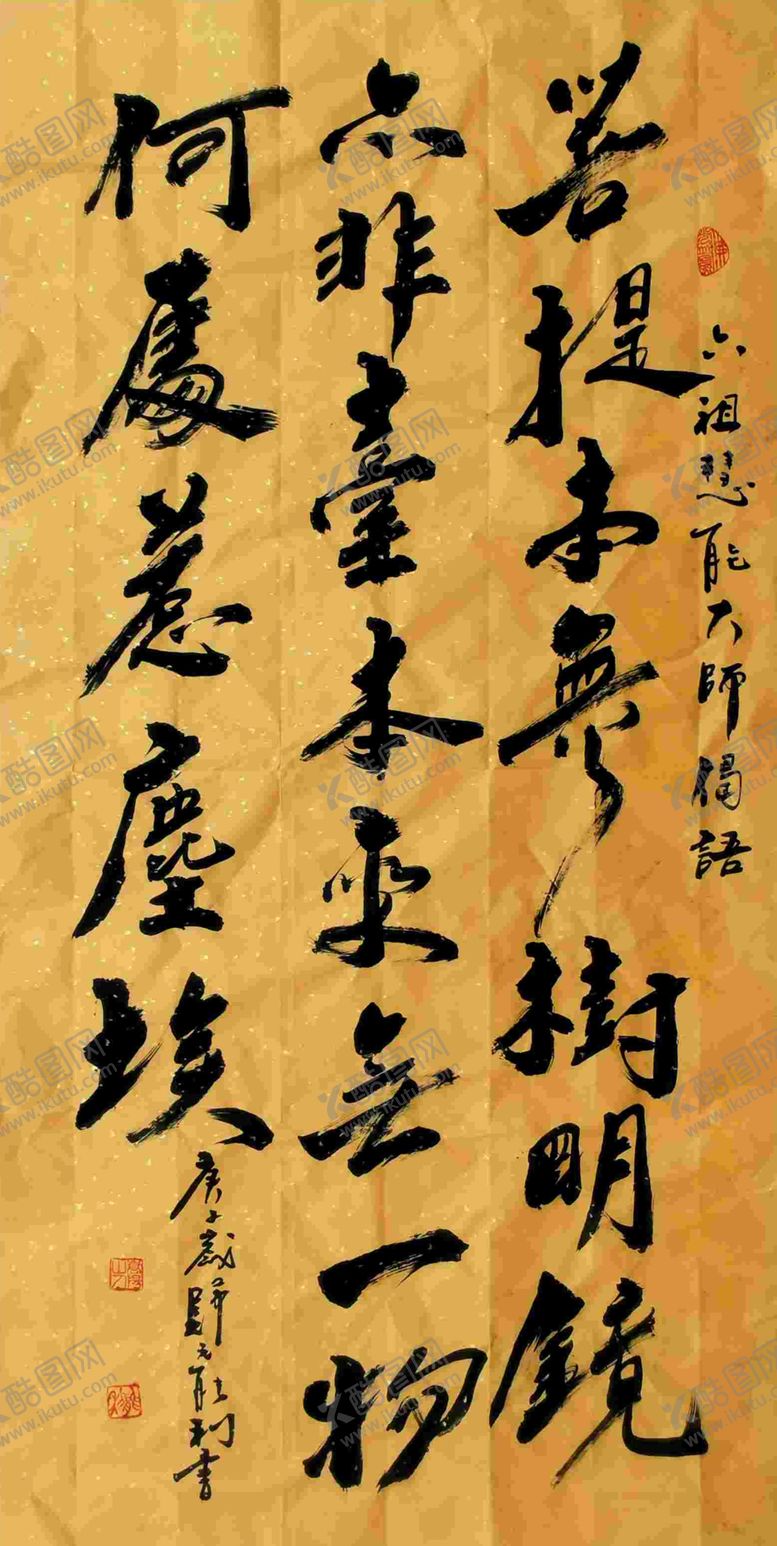 六祖慧能大師偈語
菩提本無樹明鏡
亦非臺本來無一物
何處惹塵埃
庚子歲 能利書
酷图网
www.ikutu.com